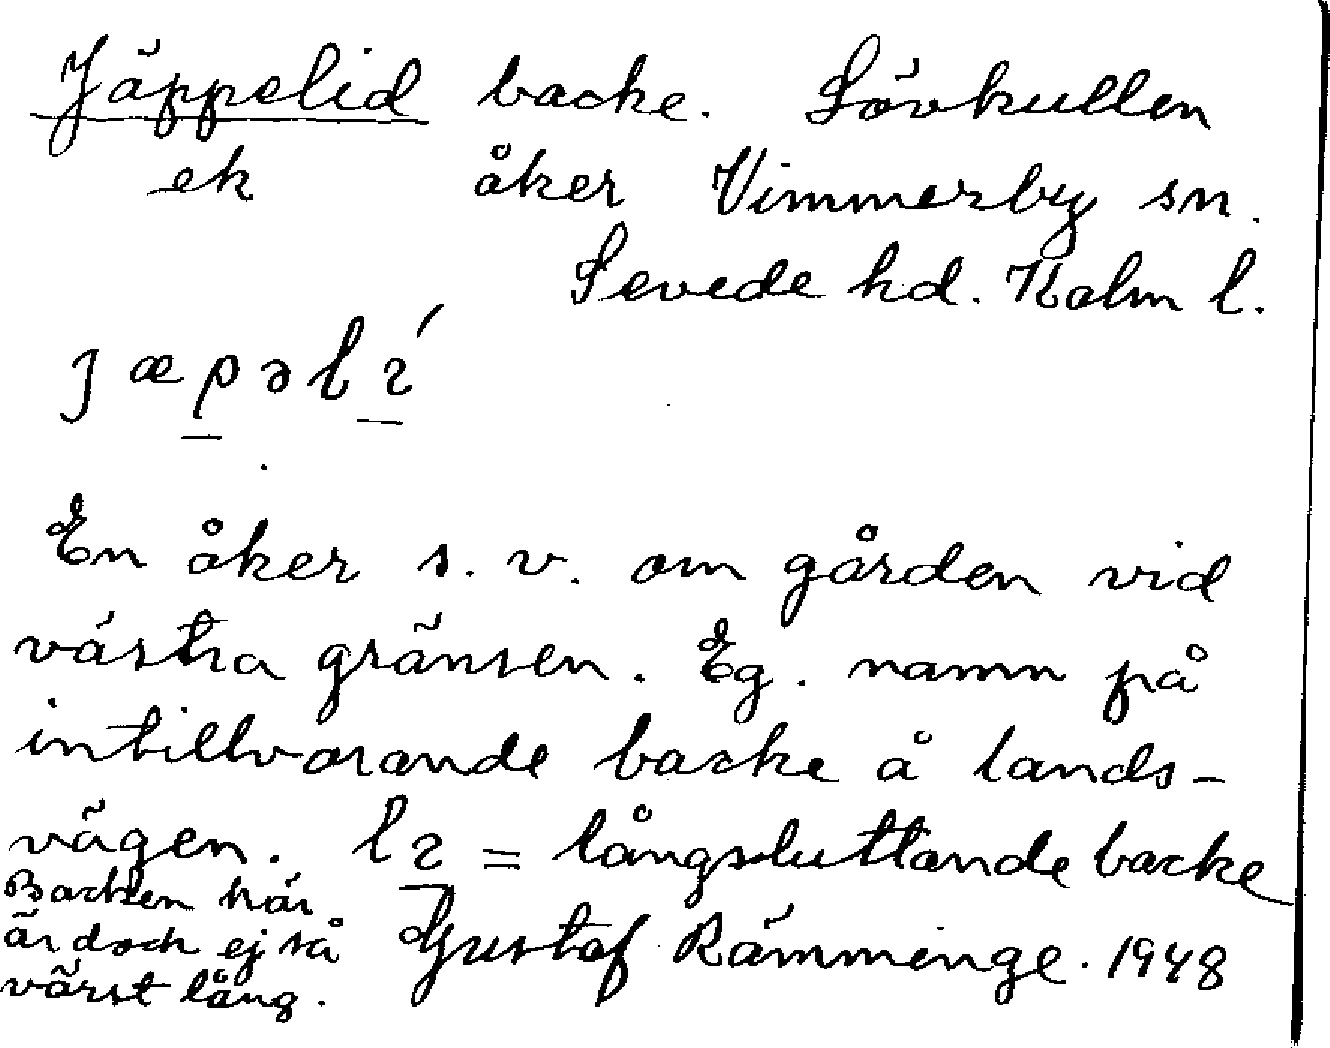 Jäppelid backe. Lövkullen
ek åker Vimmerby sn.
Sevede hd. Kalm l.
ȷæpəlɩ́
En åker s. v. om gården vid
västra gränsen. Eg. namn på
intillvarande backe å lands-
vägen. lɩ = långsluttande backe
Backen här
är dock ej så
värst lång.
Gustaf Rämminge. 1948